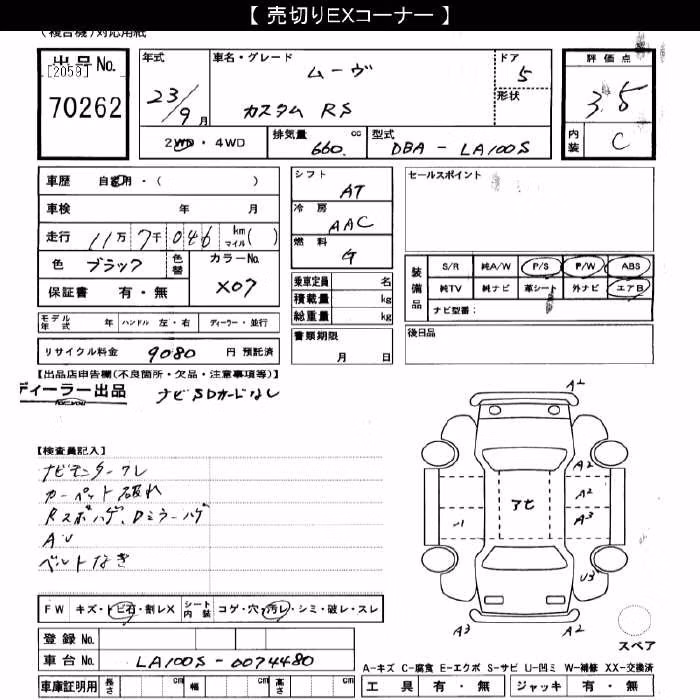 【 売切りEXコーナー 】
(複合機)対応用紙
出品No.
[2059]
70262
年式
23/9月
車名・グレード
ムーヴ
カスタム RS
ドア
5
形状
2WD・4WD
排気量 660. cc
型式 DBA - LA100S
評価点
3.5
内装 C
車歴 自家用・( )
車検 年 月
走行 11万7千046 km マイル( )
色 ブラック 色替 カラーNo. X07
保証書 有・無
モデル年式 年 ハンドル 左・右 ディーラー・並行
リサイクル料金 9080 円 預託済
シフト AT
冷房 AAC
燃料 G
乗車定員 名
積載量 kg
総重量 kg
書類期限
月 日
セールスポイント
装備品
S/R 純A/W P/S P/W ABS
純TV 純ナビ 革シート 外ナビ エアB
ナビ型番:
後日品
【出品店申告欄(不良箇所・欠品・注意事項等)】
ディーラー出品 ナビSDカードなし
【検査員記入】
ナビモニタークレ
カーペット破れ
Rスポハゲ、Dミラーハゲ
AU
ベルトなき
A2
A2
A2
A3
アセ
-1
U3
A3
A2
スペア
FW キズ・トビ石・割レX シート内装 コゲ・穴・汚レ・シミ・破レ・スレ
登録No.
車台No. LA100S-0074480
車庫証明用 長さ cm 幅 cm 高さ cm
A-キズ C-腐食 E-エクボ S-サビ U-凹ミ W-補修 XX-交換済
工具 有・無 ジャッキ 有・無